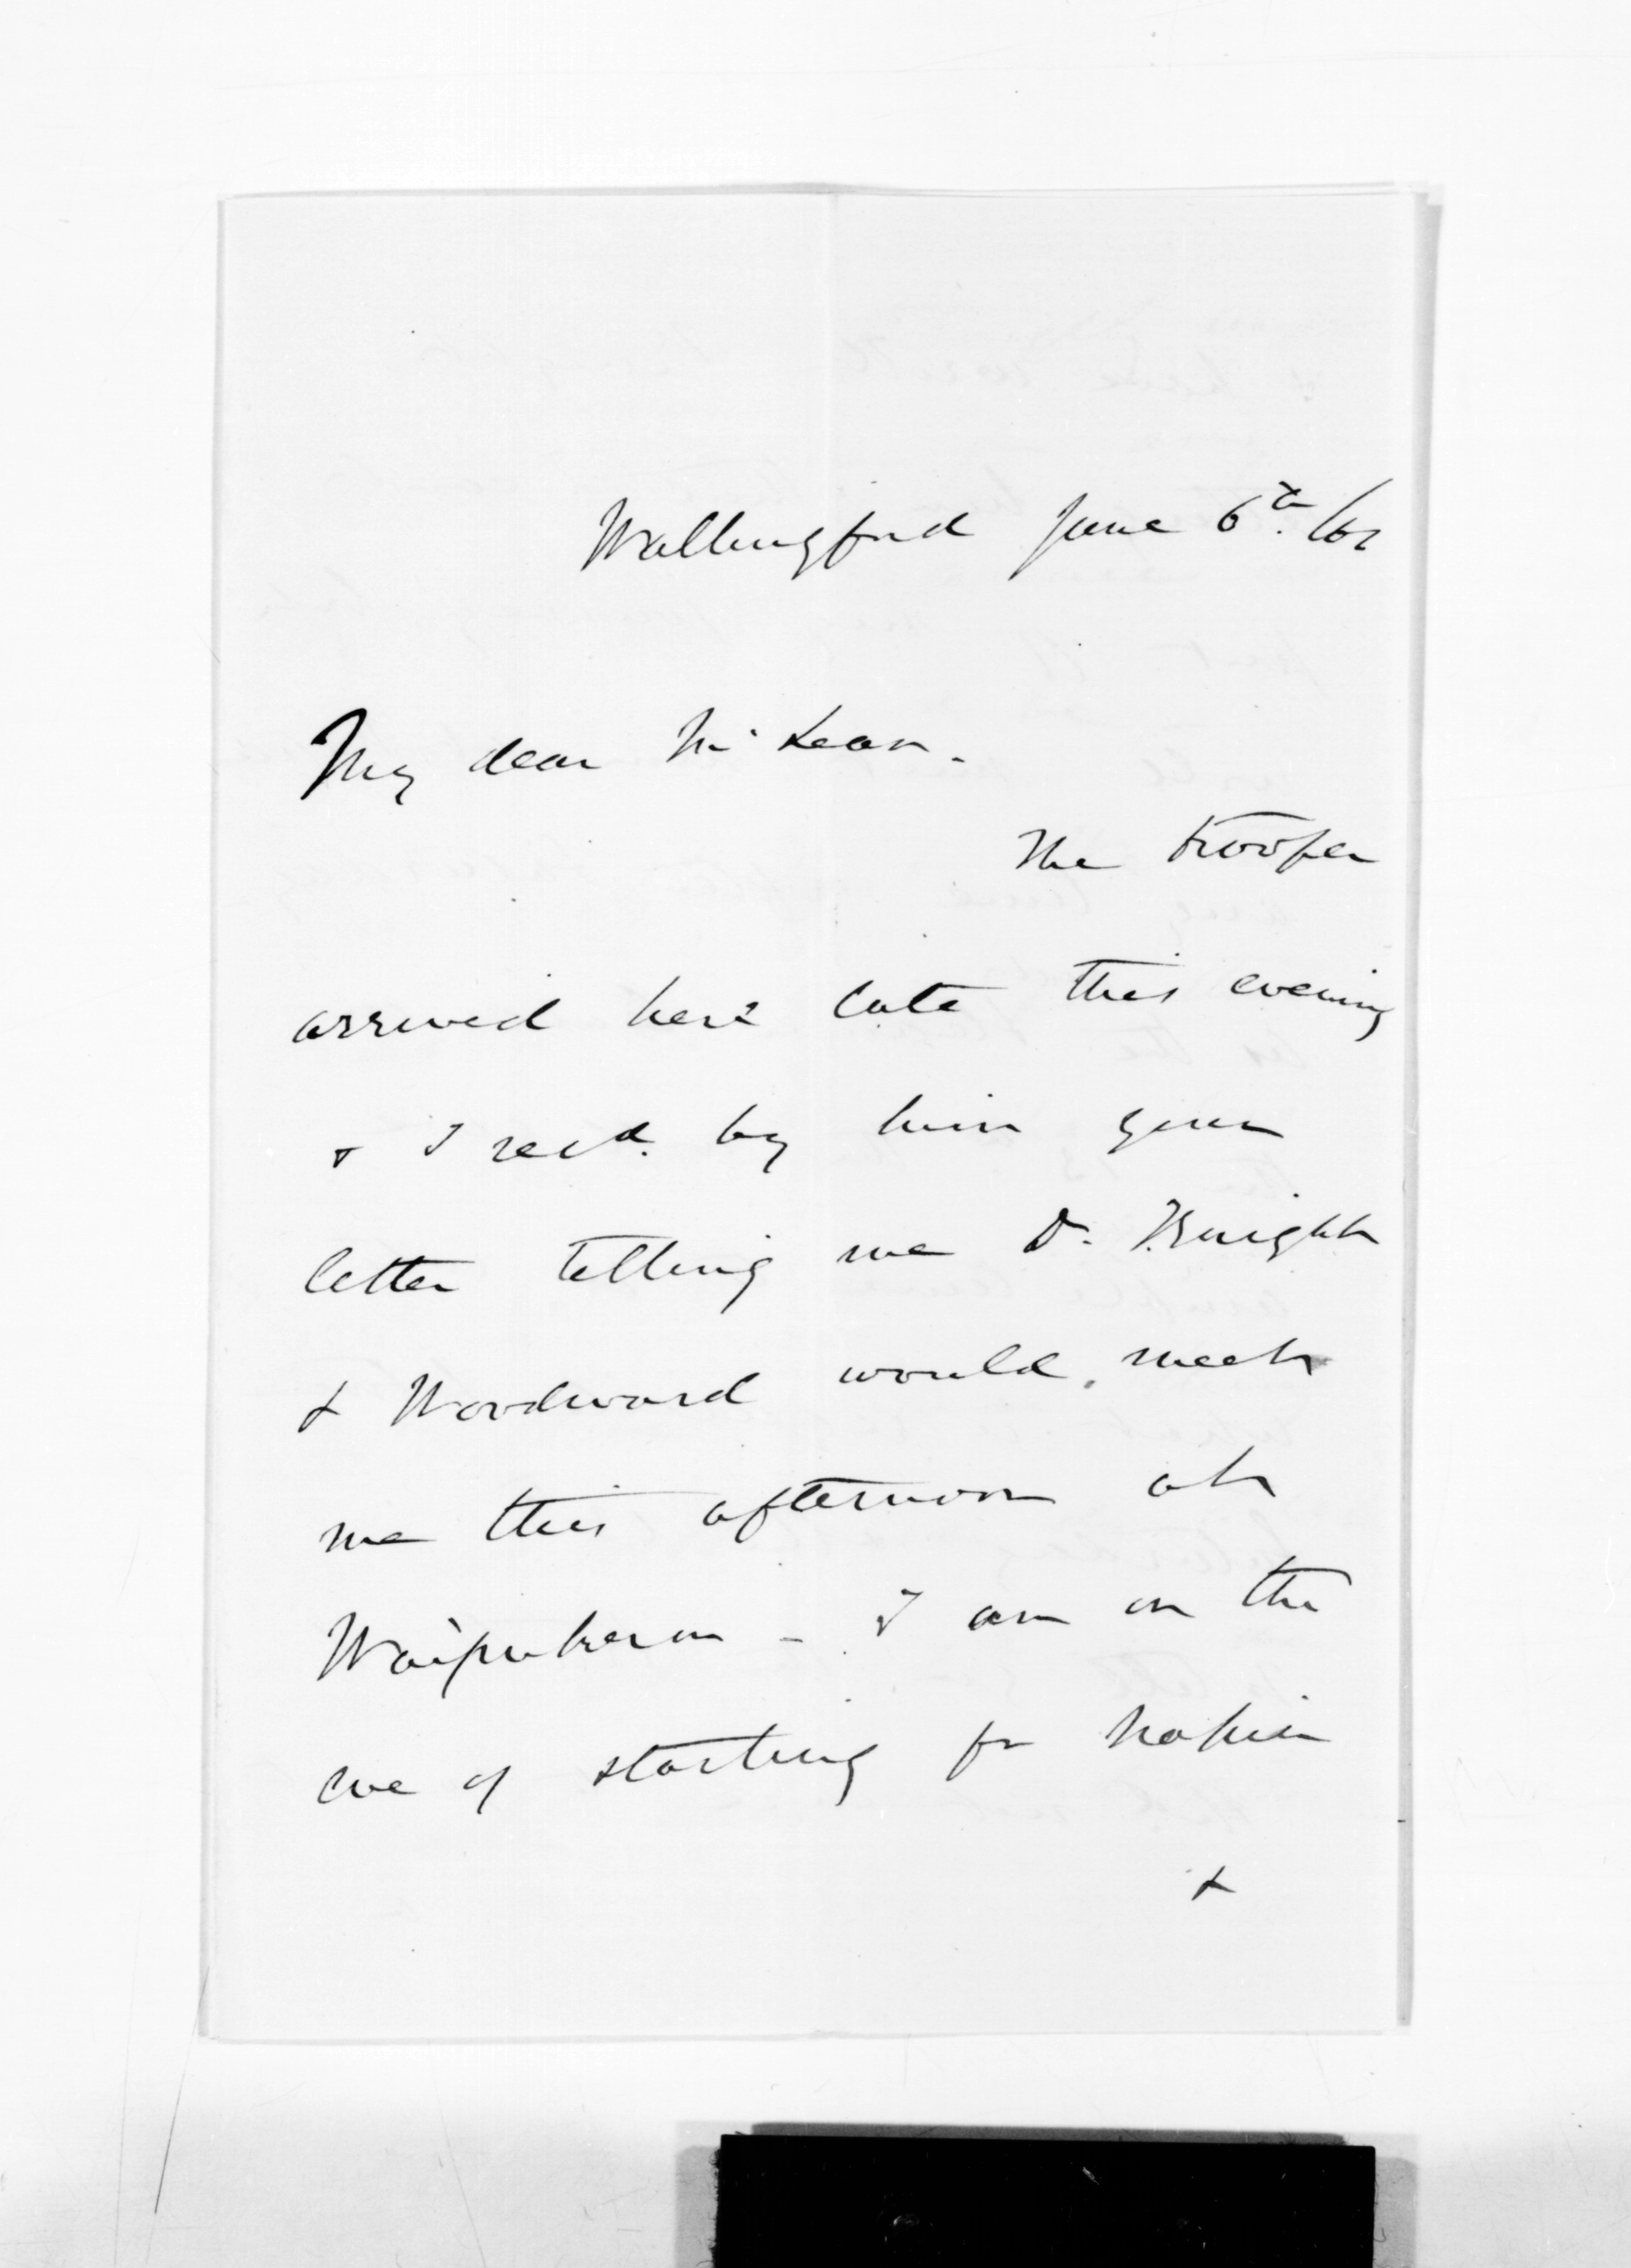 Wallingford June 6th. /62
My dear McLean.
The trooper
arrived here late this evening
& I recd. by him your
letter telling me Dr. Knight
& Woodward would meet
me this afternoon at
Waipukurau - I am on the
eve of starting for Napier
&